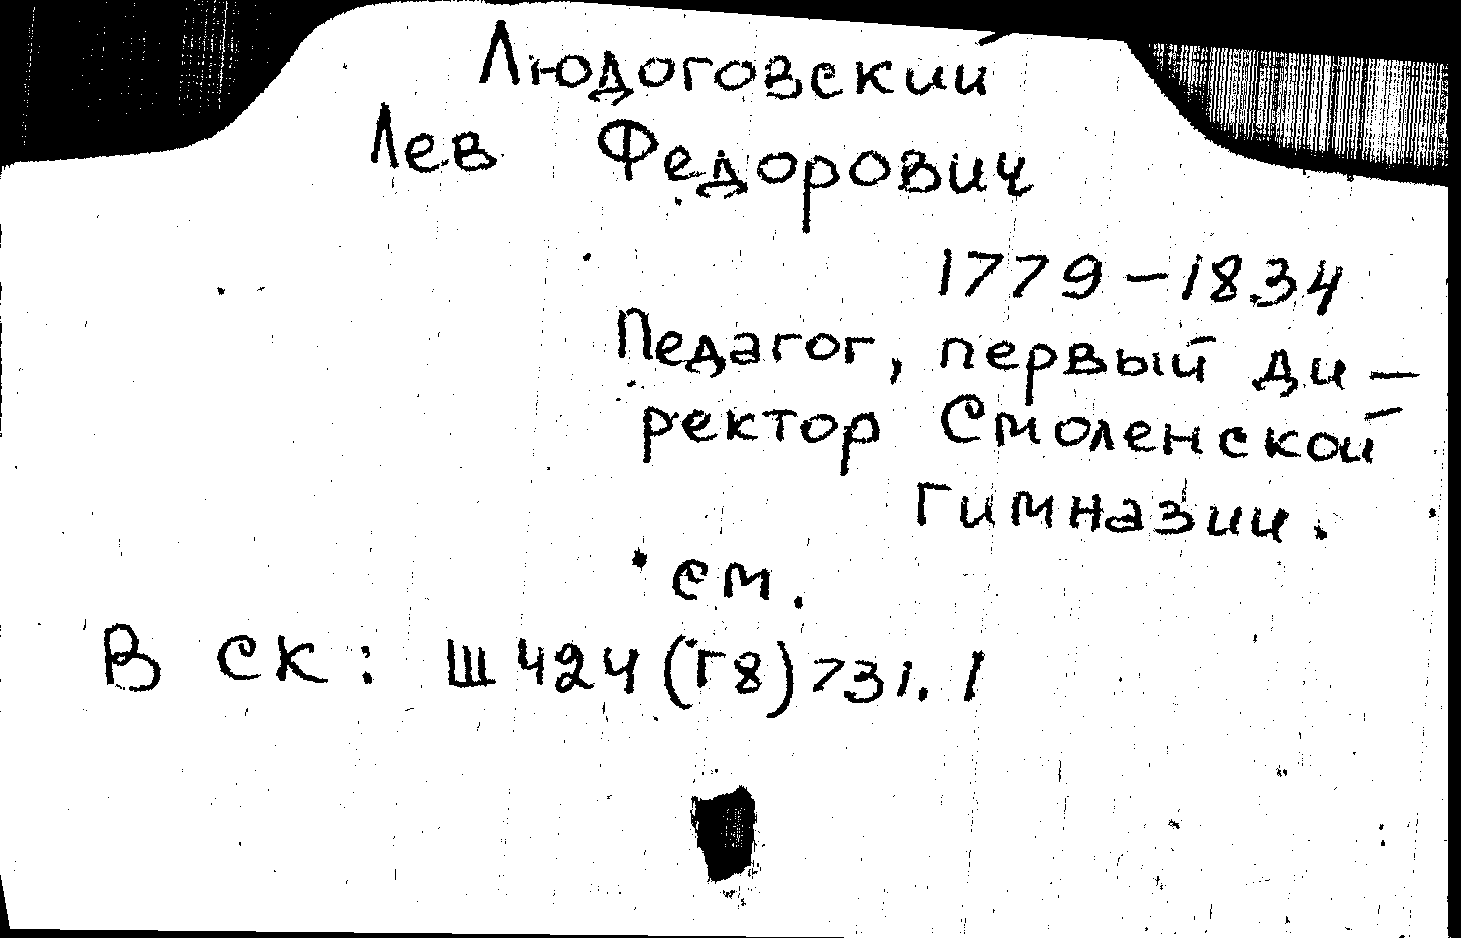 Людоговский
Лев Федорович
1779-1834
Педагог, первый ди-
ректор Смоленской
гимназии.
см.
В СК: Ш424(Г8)731.1